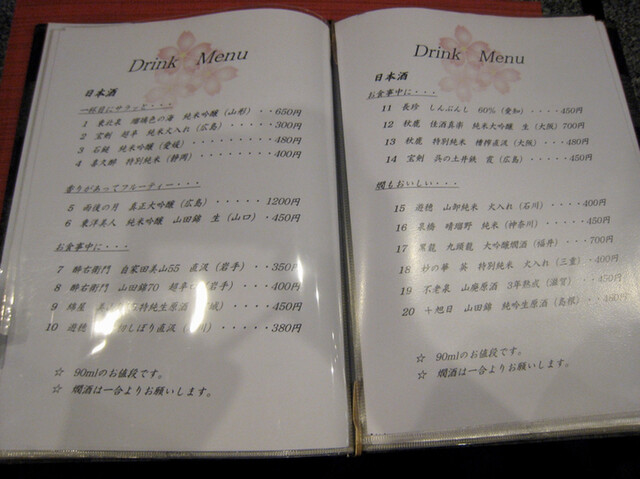 Drink Menu
日本酒
一杯目にサラッと・・・
1 東北泉 瑠璃色の海 純米吟醸（山形）・・650円
2 宝剣 超辛 純米火入れ（広島）・・・・・300円
3 石鎚 純米吟醸（愛媛）・・・・・・・480円
4 喜久酔 特別純米（静岡）・・・・・・400円
香りがあってフルーティー・・・
5 雨後の月 真正大吟醸（広島）・・・・・1200円
6 東洋美人 純米吟醸 山田錦 生（山口）・450円
お食事中に・・・
7 酔右衛門 自家田美山55 直汲（岩手）・・・350円
8 酔右衛門 山田錦70 超辛口（岩手）・・・・400円
9 綿屋 特純生原酒 城）・・・・450円
10 遊穂 しぼり直汲 川）・・・・・380円
☆ 90mlのお値段です。
☆ 燗酒は一合よりお願いします。
Drink Menu
日本酒
お食事中に・・・
11 長珍 しんぶんし 60％（愛知）・・・・450円
12 秋鹿 佳酒真楽 純米吟醸 生（大阪）700円
13 秋鹿 特別純米 槽搾直汲（大阪）・・・480円
14 宝剣 呉の土井鉄 霞（広島）・・・・・450円
燗もおいしい・・・
15 遊穂 山卸純米 火入れ（石川）・・・・400円
16 泉橋 晴耀野 純米（神奈川）・・・・・450円
17 黒龍 九頭龍 大吟醸燗酒（福井）・・・700円
18 妙の華 英 特別純米 火入れ（三重）・400円
19 不老泉 山廃原酒 3年熟成（滋賀）・・450円
20 十旭日 山田錦 純吟生原酒（島根）・460円
☆ 90mlのお値段です。
☆ 燗酒は一合よりお願いします。